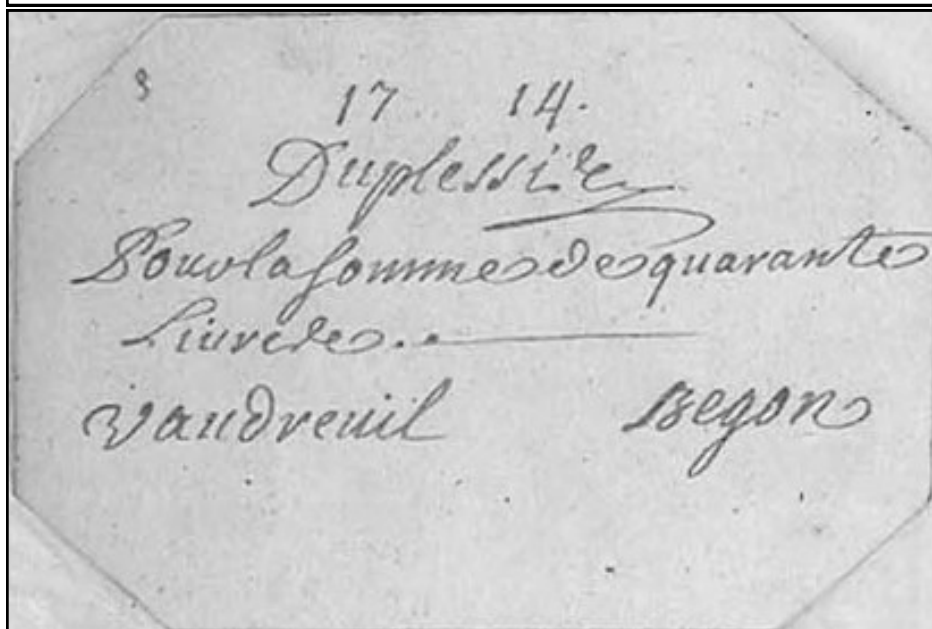 17 14.
Duplessis
Pour la somme de quarante
Livres.
Vaudreuil Begon